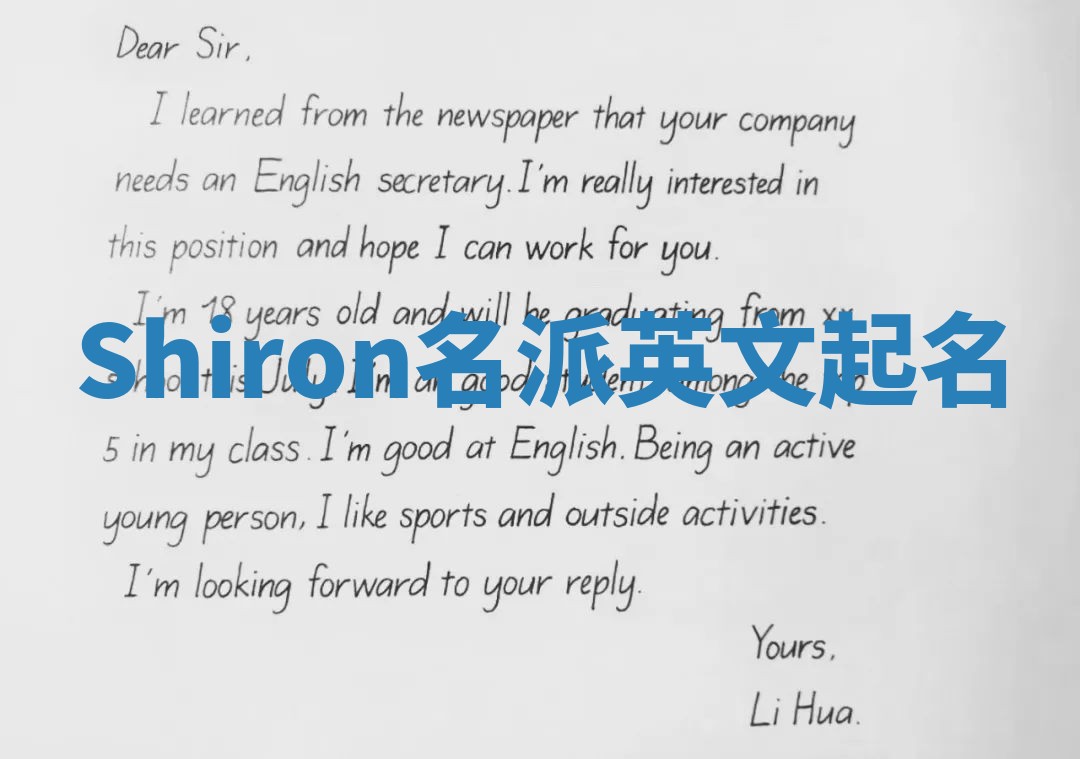 Dear Sir,
I learned from the newspaper that your company
needs an English secretary. I'm really interested in
this position and hope I can work for you.
I'm 18 years old and will be graduating from xx
Shiron名派英文起名
school this July. I'm a good student among the top
5 in my class. I'm good at English. Being an active
young person, I like sports and outside activities.
I'm looking forward to your reply.
Yours,
Li Hua.